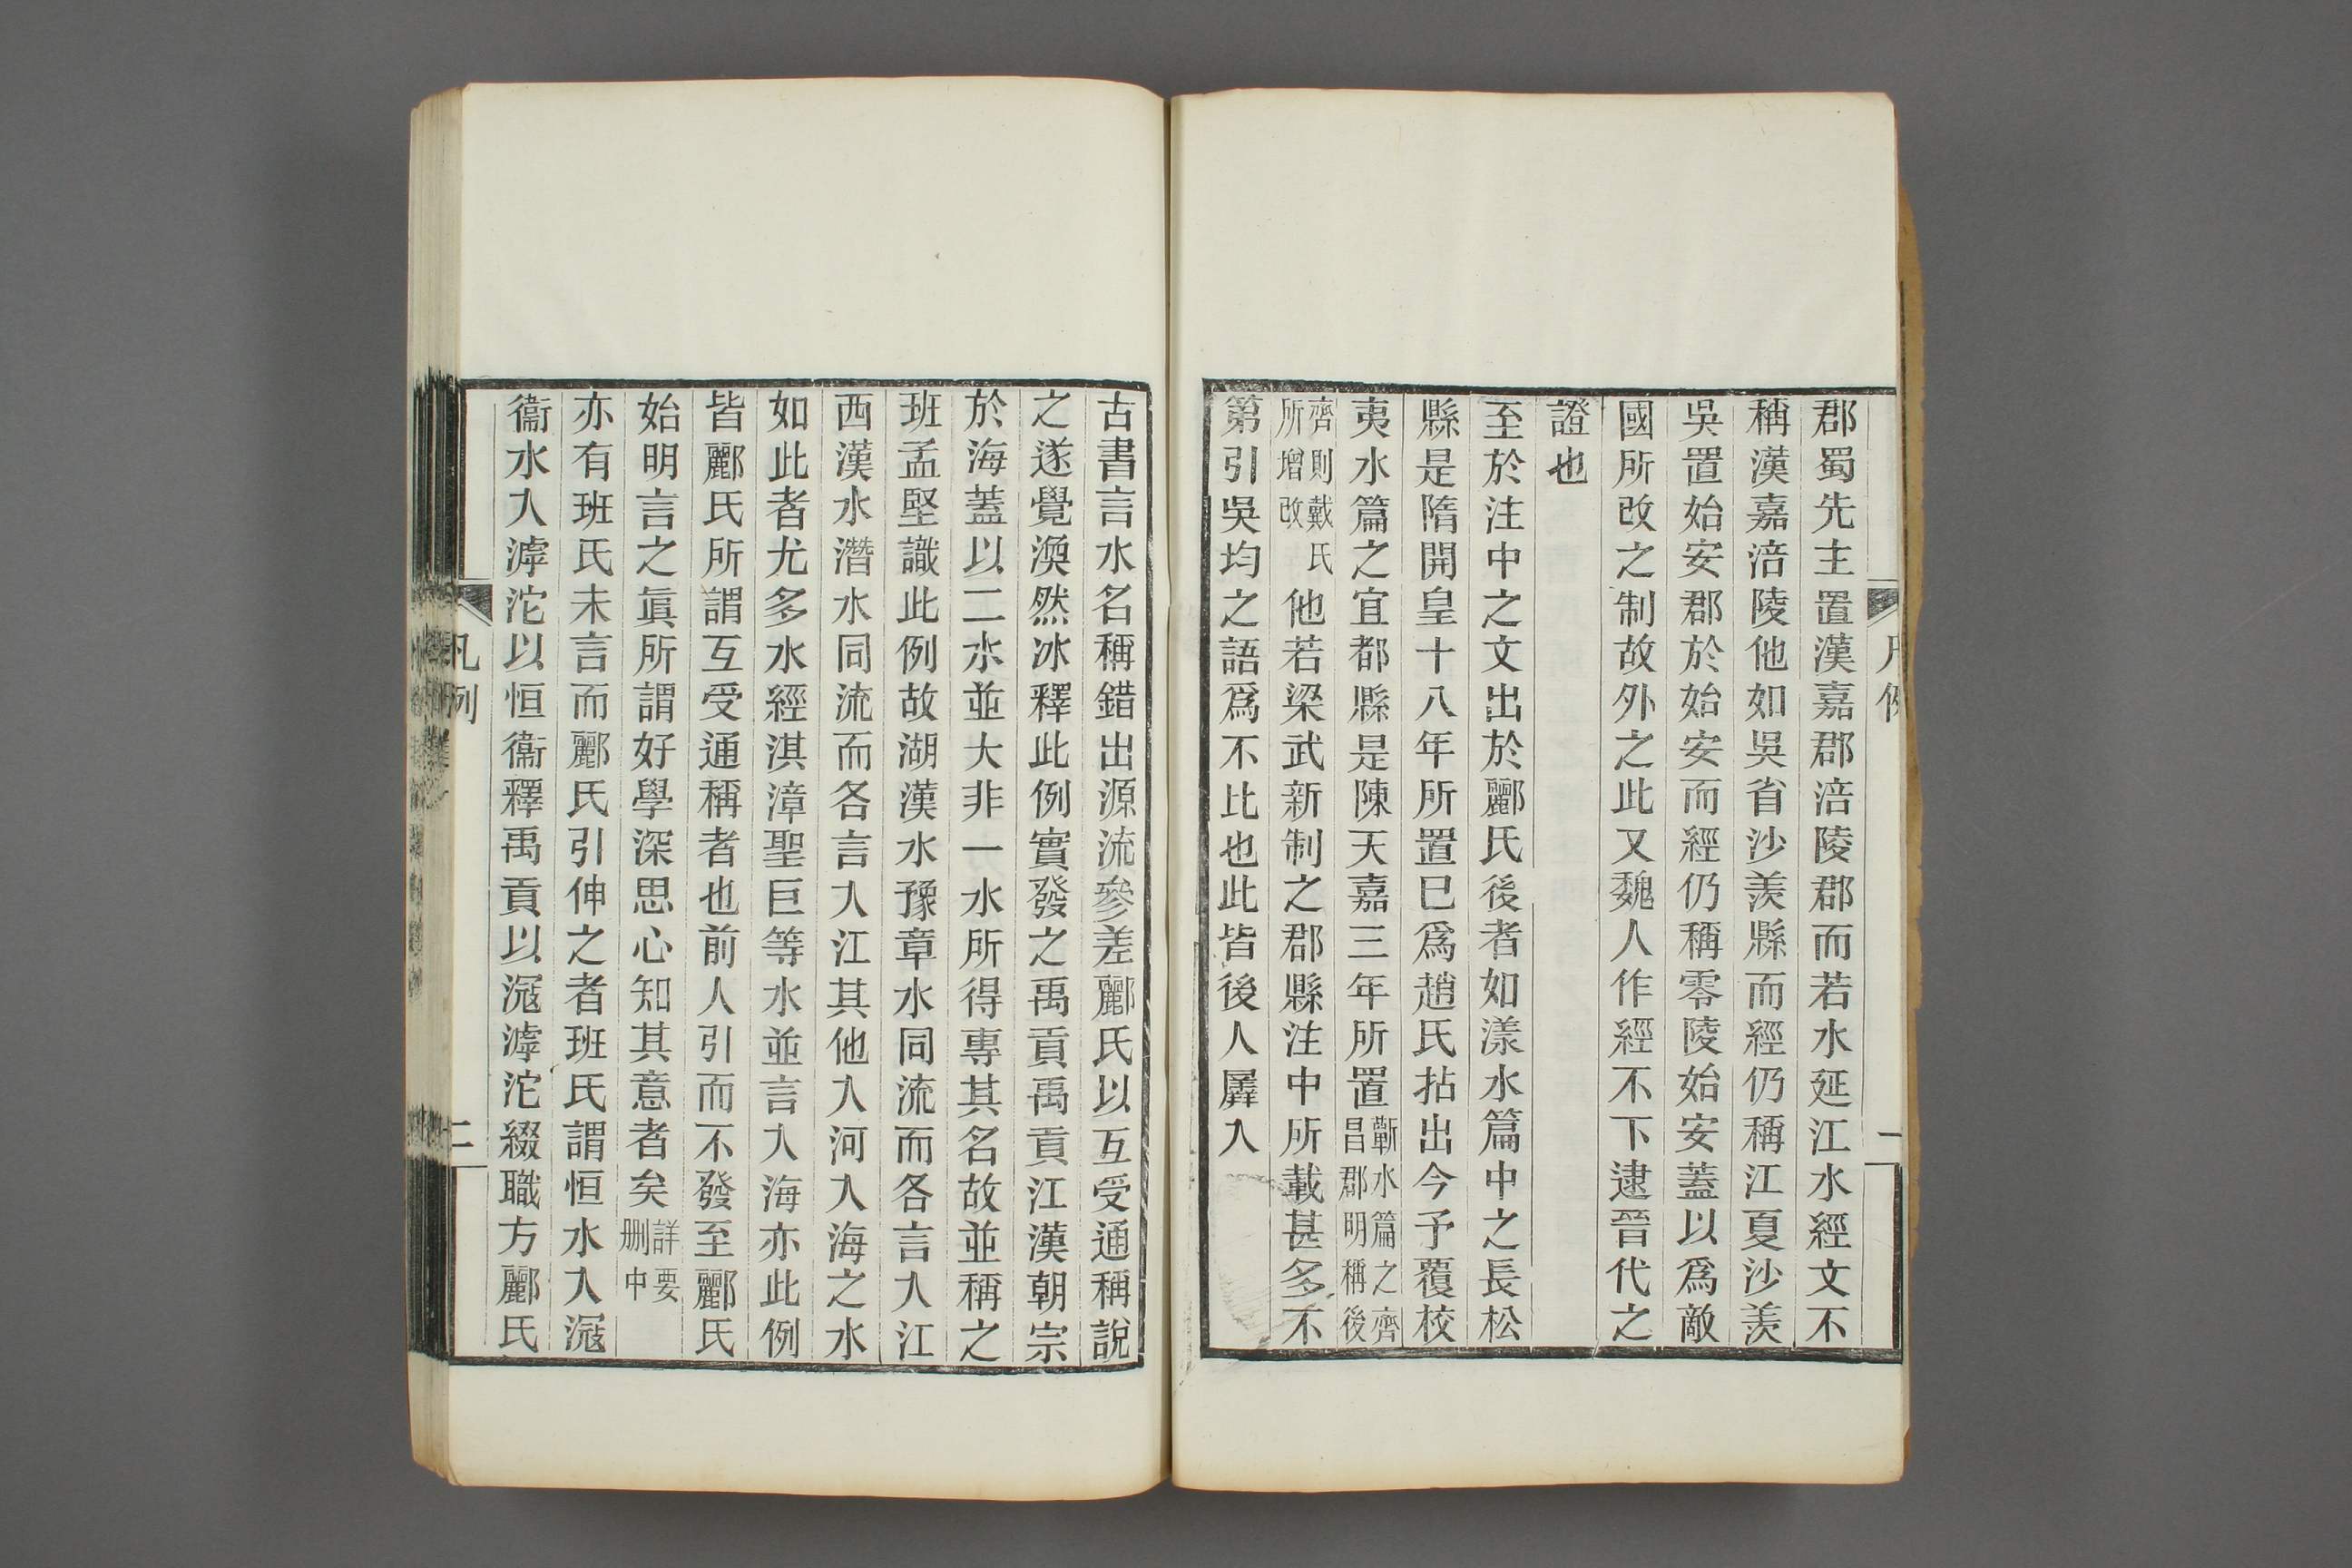 郡蜀先主置漢嘉郡涪陵郡而若水延江水經文不
稱漢嘉涪陵他如吳省沙羡縣而經仍稱江夏沙羡
吳置始安郡於始安而經仍稱零陵始安蓋以爲敵
國所改之制故外之此又魏人作經不下逮晉代之
證也
至於注中之文出於酈氏後者如漾水篇中之長松
縣是隋開皇十八年所置已爲趙氏拈出今予覆校
夷水篇之宜都縣是陳天嘉三年所置蘄水篇之齊昌郡明稱後
齊則戴氏所增改他若梁武新制之郡縣注中所載甚多不
第引吳均之語爲不比也此皆後人羼入
古書言水名稱錯出源流參差酈氏以互受通稱說
之遂覺渙然冰釋此例實發之禹貢禹貢江漢朝宗
於海蓋以二水並大非一水所得專其名故並稱之
班孟堅識此例故湖漢水豫章水同流而各言入江
西漢水潛水同流而各言入江其他入河入海之水
如此者尤多水經淇漳聖巨等水並言入海亦此例
皆酈氏所謂互受通稱者也前人引而不發至酈氏
始明言之眞所謂好學深思心知其意者矣詳要删中
亦有班氏未言而酈氏引伸之者班氏謂恒水入滱
衞水入滹沱以恒衞釋禹貢以滱滹沱綴職方酈氏
凡例
二